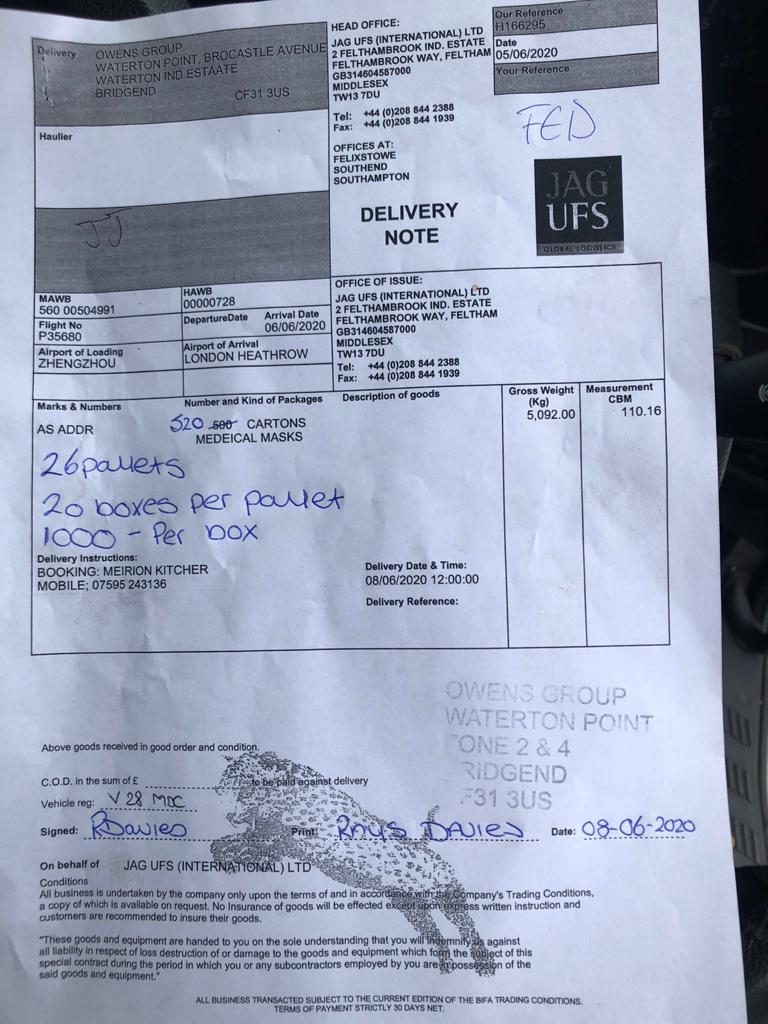 Delivery
OWENS GROUP
WATERTON POINT, BROCASTLE AVENUE
WATERTON IND ESTAATE
BRIDGEND
CF31 3US
HEAD OFFICE:
JAG UFS (INTERNATIONAL) LTD
2 FELTHAMBROOK IND. ESTATE
FELTHAMBROOK WAY, FELTHAM
GB314604587000
MIDDLESEX
TW13 7DU
Tel: +44 (0)208 844 2388
Fax: +44 (0)208 844 1939
OFFICES AT:
FELIXSTOWE
SOUTHEND
SOUTHAMPTON
Our Reference
H166295
Date
05/06/2020
Your Reference
FED
Haulier
JJ
DELIVERY
NOTE
JAG
UFS
GLOBAL LOGISTICS
MAWB
560 00504991
HAWB
00000728
Flight No
P35680
DepartureDate
Arrival Date
06/06/2020
Airport of Loading
ZHENGZHOU
Airport of Arrival
LONDON HEATHROW
OFFICE OF ISSUE:
JAG UFS (INTERNATIONAL) LTD
2 FELTHAMBROOK IND. ESTATE
FELTHAMBROOK WAY, FELTHAM
GB314604587000
MIDDLESEX
TW13 7DU
Tel: +44 (0)208 844 2388
Fax: +44 (0)208 844 1939
Marks & Numbers
Number and Kind of Packages
Description of goods
Gross Weight
(Kg)
Measurement
CBM
AS ADDR
520 500 CARTONS
MEDEICAL MASKS
5,092.00
110.16
26 pallets
20 boxes per pallet
1000 - Per box
Delivery Instructions:
BOOKING: MEIRION KITCHER
MOBILE; 07595 243136
Delivery Date & Time:
08/06/2020 12:00:00
Delivery Reference:
OWENS GROUP
WATERTON POINT
ONE 2 & 4
RIDGEND
F31 3US
Above goods received in good order and condition.
C.O.D. in the sum of £ to be paid against delivery
Vehicle reg: V 28 MDC
Signed: RDavies Print: RHYS DAVIES Date: 08-06-2020
On behalf of JAG UFS (INTERNATIONAL) LTD
Conditions
All business is undertaken by the company only upon the terms of and in accordance with the Company's Trading Conditions,
a copy of which is available on request. No Insurance of goods will be effected except upon express written instruction and
customers are recommended to insure their goods.
"These goods and equipment are handed to you on the sole understanding that you will indemnify us against
all liability in respect of loss destruction of or damage to the goods and equipment which form the subject of this
special contract during the period in which you or any subcontractors employed by you are in possession of the
said goods and equipment."
ALL BUSINESS TRANSACTED SUBJECT TO THE CURRENT EDITION OF THE BIFA TRADING CONDITIONS.
TERMS OF PAYMENT STRICTLY 30 DAYS NET.